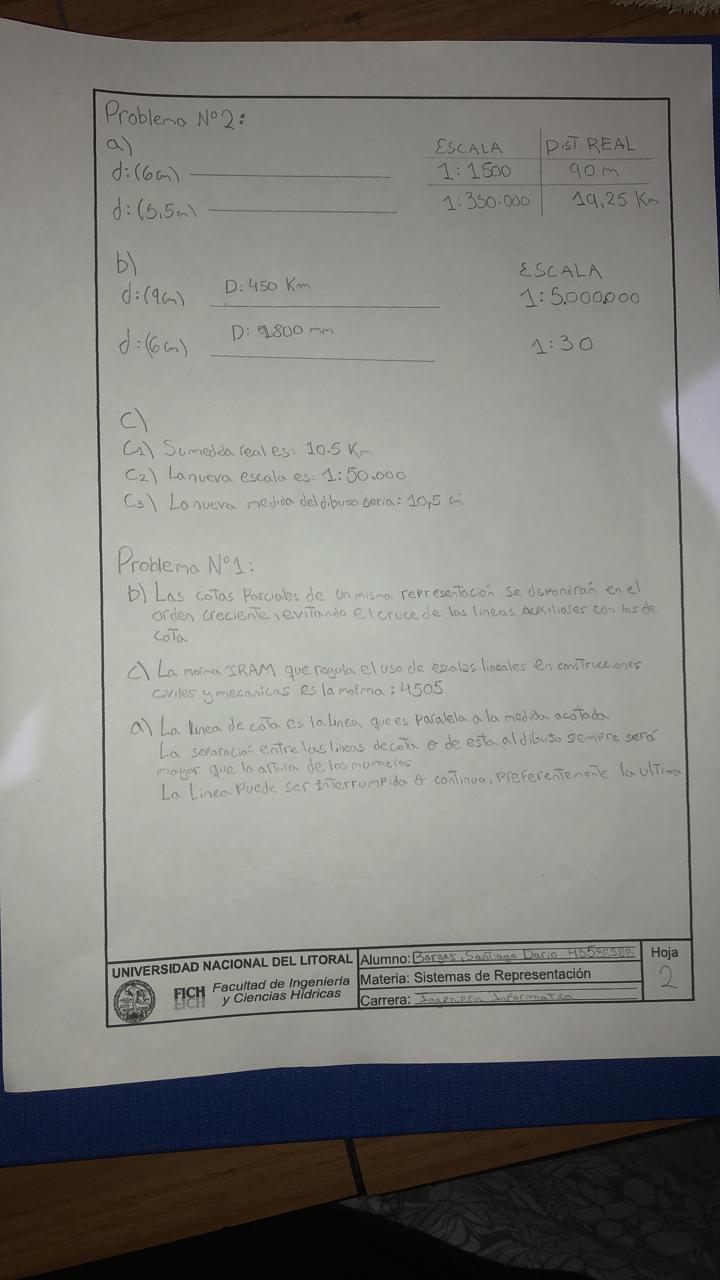 Problema N°2:
a)
ESCALA DIST REAL
d:(6cm) 1:1500 90 m
d:(5,5cm) 1:350.000 19,25 Km
b)
ESCALA
d:(9cm) D: 450 Km 1:5.000.000
d:(6cm) D: 1800 mm 1:30
c)
C1) Su medida real es: 10.5 Km
C2) La nueva escala es: 1:50.000
C3) La nueva medida del dibujo seria: 10,5 cm
Problema N°1:
b) Las cotas Parciales de un misma representación se dispondrán en el
orden creciente, evitando el cruce de las lineas auxiliares con las de
cota
c) La norma IRAM que regula el uso de escalas lineales en construcciones
civiles y mecanicas es la norma: 4505
a) La linea de cota es la linea que es Paralela a la medida acotada
La separación entre las lineas de cota o de esta al dibujo sempre será
mayor que la altura de los numeros
La Linea Puede ser interrumpida o continua, Preferentemente la ultima
UNIVERSIDAD NACIONAL DEL LITORAL
FICH Facultad de Ingeniería
y Ciencias Hídricas
Alumno: Borgas, Santiago Dario
Materia: Sistemas de Representación
Carrera: Ingenieria Informatica
Hoja
2